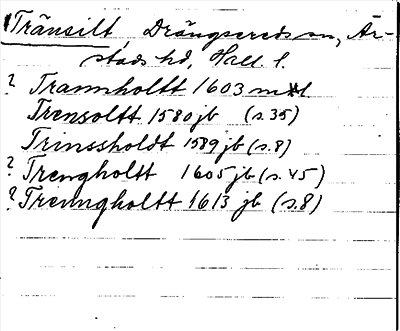 Tränsilt, Drängsereds sn, År-
stads hd, Hall. l.
? Trannholtt 1603 ml
Trensoltt 1580 jb (s. 35)
Trinssholdt 1589 jb (s. 8)
? Trengholtt 1605 jb (s. 45)
? Trenngholtt 1613 jb (s. 8)